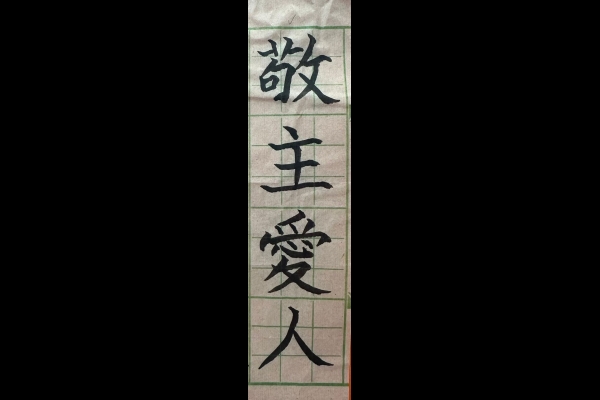 敬主愛人